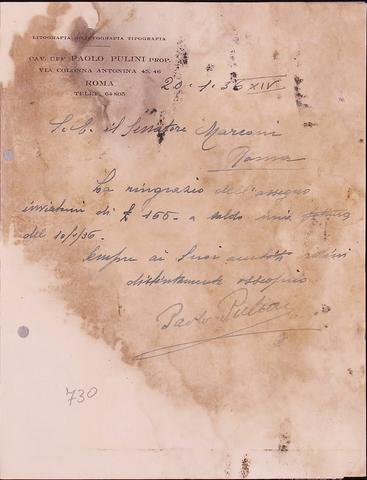 LITOGRAFIA TIPOGRAFIA
CAV. UFF. PAOLO PULINI PROP.
VIA COLONNA ANTONINA 45, 46
ROMA
TELEF. 64805
20-1-36 XIV
S.E. il Senatore Marconi
Roma
La ringrazio dell'assegno
inviatomi di £ 166.- a saldo mia fattura
del 10/1/36.
Sempre ai Suoi
distintamente ossequio
Paolo Pulini
730